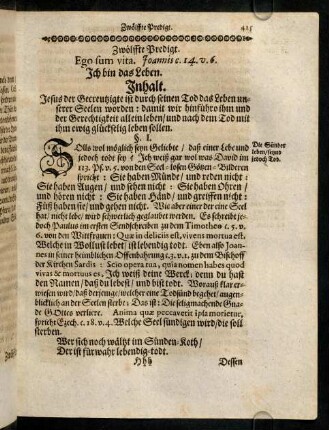 Zwölffte Predigt. 425
Zwölffte Predigt.
Ego sum vita. Joannis c. 14. v. 6.
Ich bin das Leben.
Inhalt.
Jesus der Gecreutzigte ist durch seinen Tod das Leben un-
serer Seelen worden: damit wir hinführo ihm und
der Gerechtigkeit allein leben/ und nach dem Tod mit
ihm ewig glückselig leben sollen.
§. I.
Solls wol möglich seyn Geliebte/ daß einer Lebe und
jedoch todt sey? Ich weiß gar wol was David im
113. Ps. v. 5. von den Seel-losen Götzen-Bilderen
spricht: Sie haben Münde/ und reden nicht:
Sie haben Augen/ und sehen nicht: Sie haben Ohren/
und hören nicht: Sie haben Händ/ und greiffen nicht:
Füß haben sie/ und gehen nicht. Wie aber einer der eine Seel
hat/ nicht lebe/ wird schwerlich geglaubet werden. Es schreibt je-
doch Paulus im ersten Sendschreiben zu dem Timotheo c. 5. v.
6. von der Wittfrauen: Quæ in deliciis est, vivens mortua est.
Welche in Wollust lebet/ ist lebendig todt. Eben also Joan-
nes in seiner heimlichen Offenbahrung c. 3. v. 1. zu dem Bischoff
der Kirchen Sardis: Scio opera tua, quia nomen habes quod
vivas & mortuus es, Ich weiß deine Werck: denn du hast
den Namen/ daß du lebest/ und bist todt. Worauß klar er-
wiesen wird/ daß derjenige/ welcher eine Todsünd begehet/ augen-
blicklich an der Seelen sterbe: Das ist: Die seligmachende Gnade
GOttes verliere. Anima quæ peccaverit ipsa morietur,
spricht Ezech. c. 18. v. 4. Welche Seel sündigen wird/ die soll
sterben.
Wer sich noch wältzt im Sünden-Koth/
Der ist fürwahr lebendig-todt.
Hhh Dessen
Die Sünder
leben/ seynd
jedoch Tod.